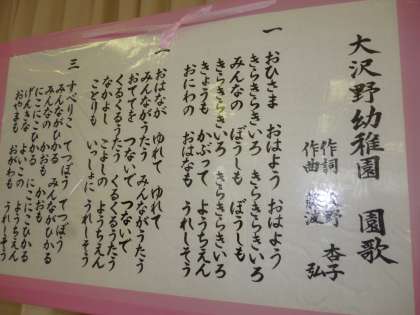 大沢野幼稚園 園歌
作詞 野 杏子
作曲 波 弘
一
おひさま おはよう おはよう
きらきらきいろ きらきらきいろ
みんなの ぼうしも ぼうしも
きらきらきいろ きらきらきいろ
きょうも かぶって ようちえん
おにわの おはなも うれしそう
おはなが ゆれて ゆれて
みんながうたう みんながうたう
おててを つないで つないで
くるくるうたう くるくるうたう
なかよし こよしの ようちえん
ことりも いっしょに うれしそう
三
すべりこ てつぼう てつぼう
みんながひかる みんながひかる
みんなの かおも かおも
にこにこひかる にこにこひかる
げんきな よいこの ようちえん
おやまも おがわも うれしそう